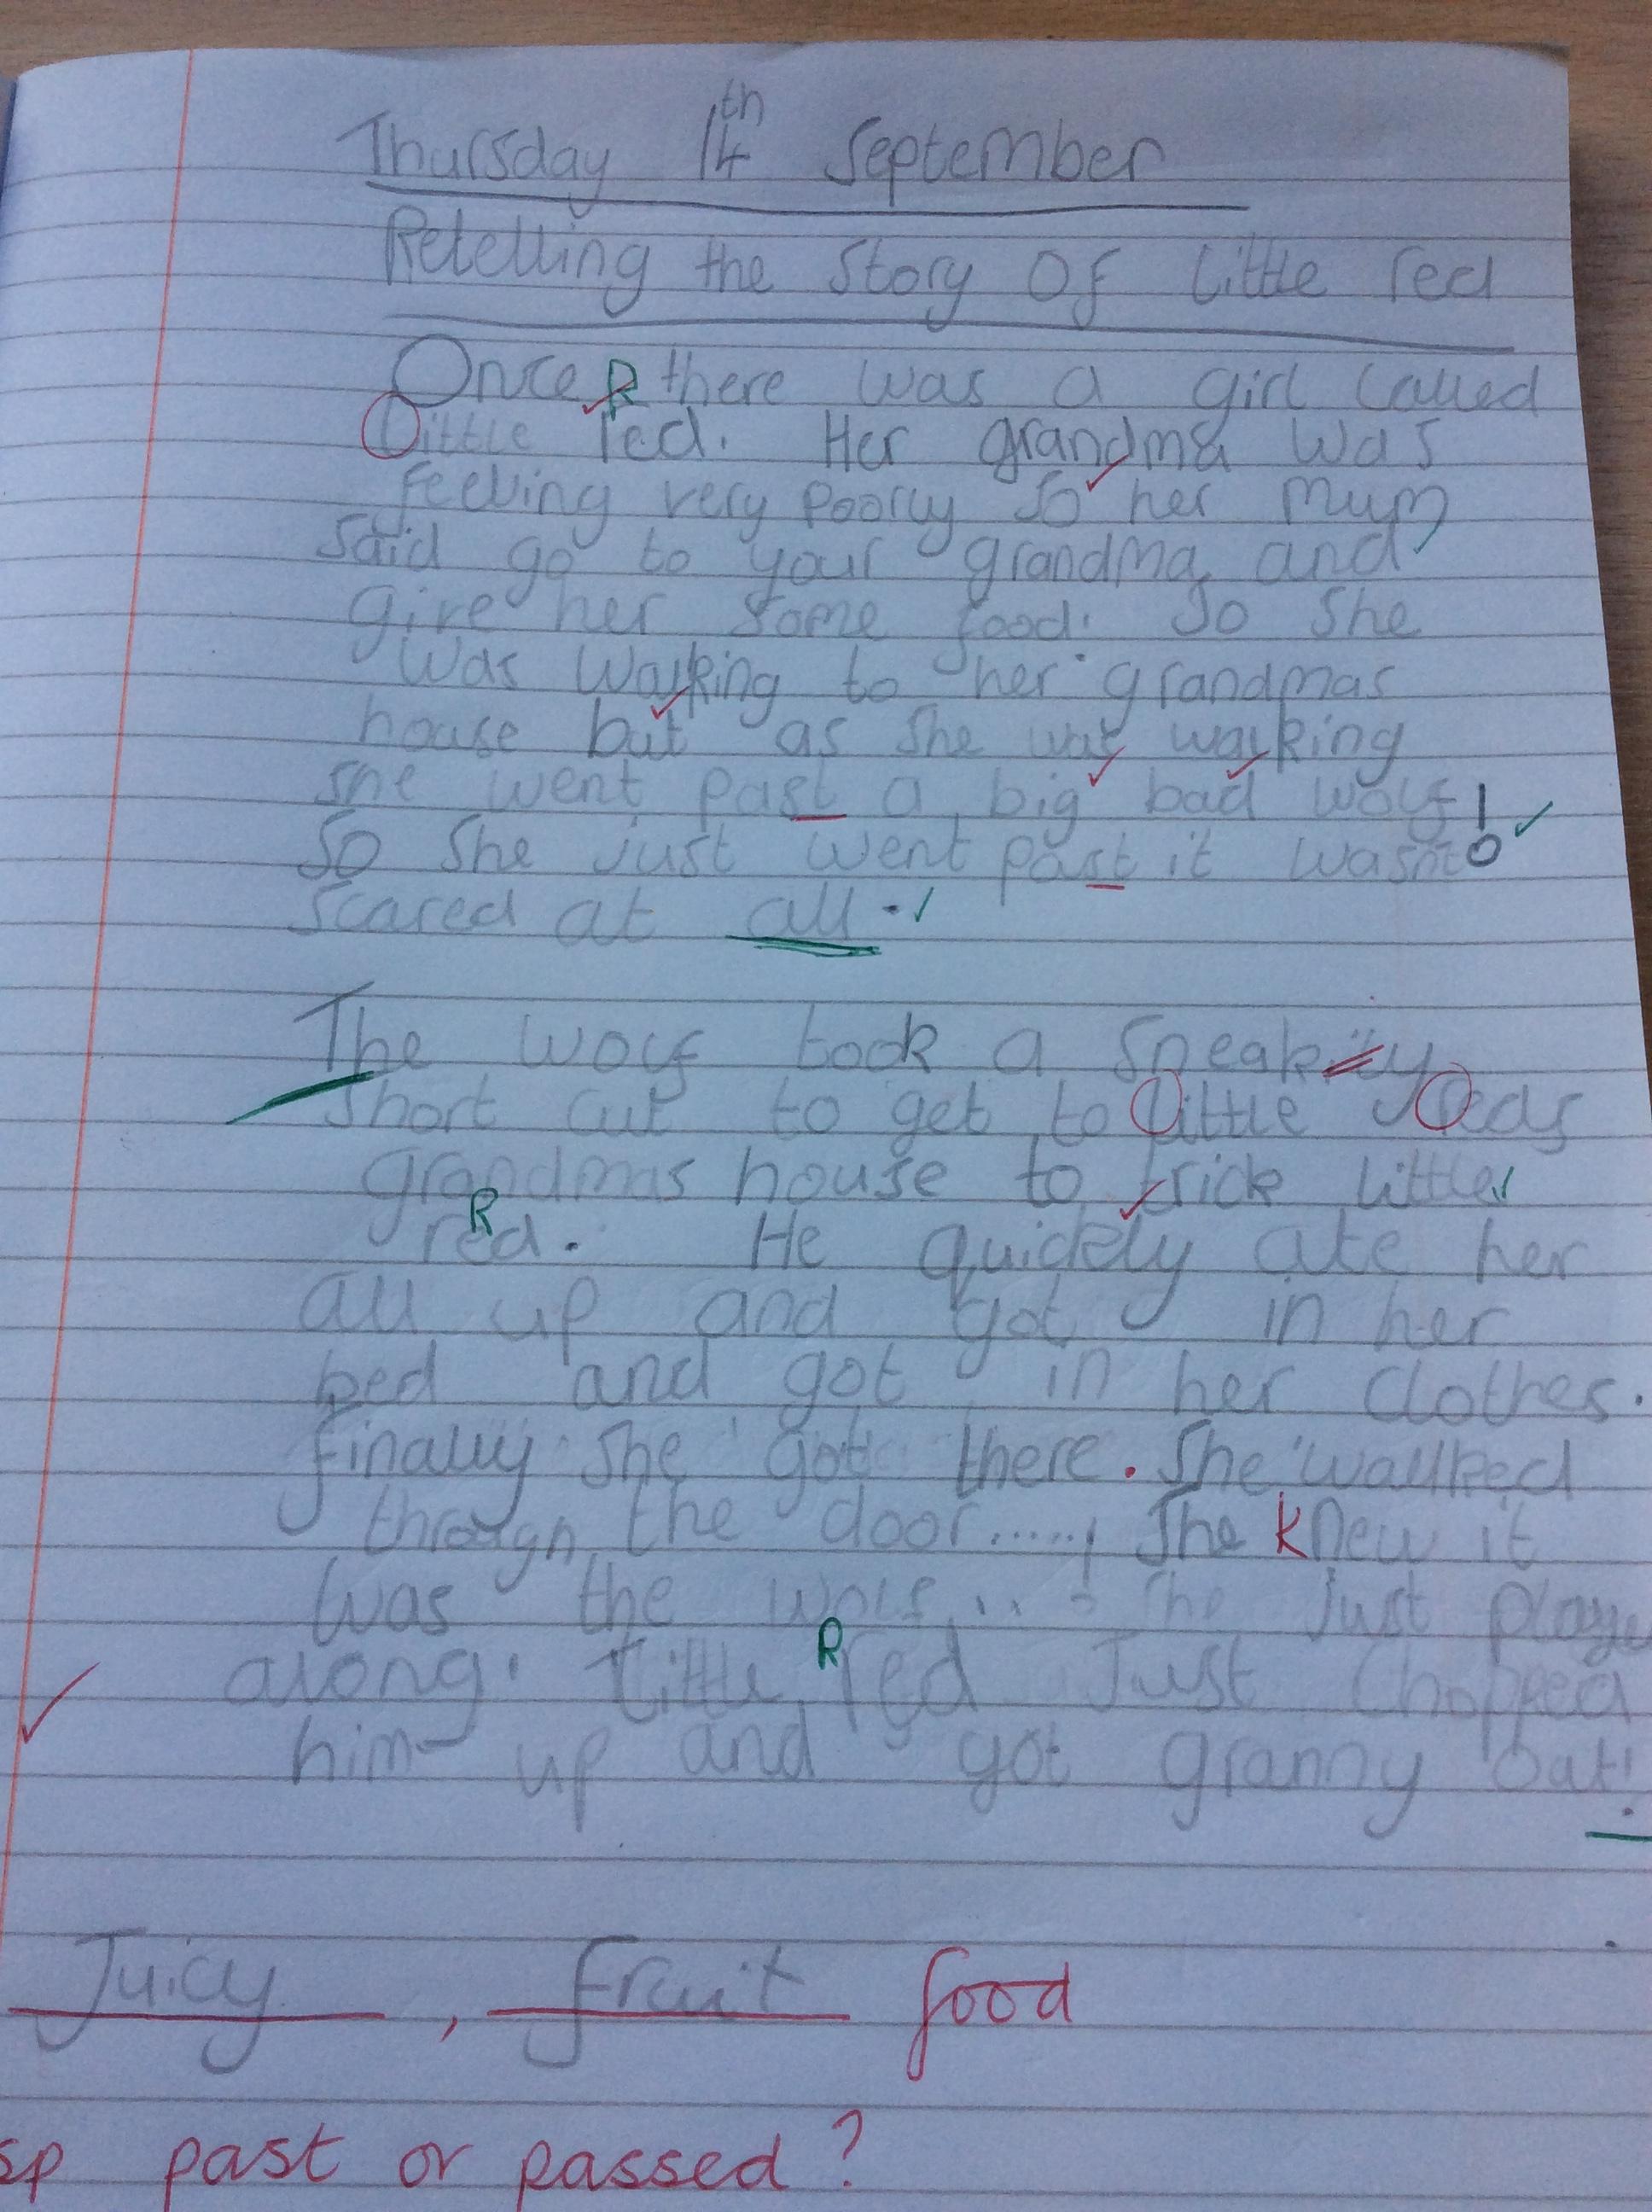 Thursday 14th September
Retelling the story of little red
Once there was a girl called
R
little red. Her grandma was
feeling very poorly so her mum
said go to your grandma and
give her some food. So she
was walking to her grandmas
house but as she was walking
she went past a big bad wolf!
So she just went past it wasnt
scared at all.
The wolf took a sneaky
short cut to get to little reds
grandmas house to trick little
R
red. He quickly ate her
all up and got in her
bed and got in her clothes.
finally she got there. She wallked
through the door...... She knew it
was the wolf.... She just playe
R
along. Little red Just chopped
him up and got granny out!
Juicy, fruit food
sp past or passed?